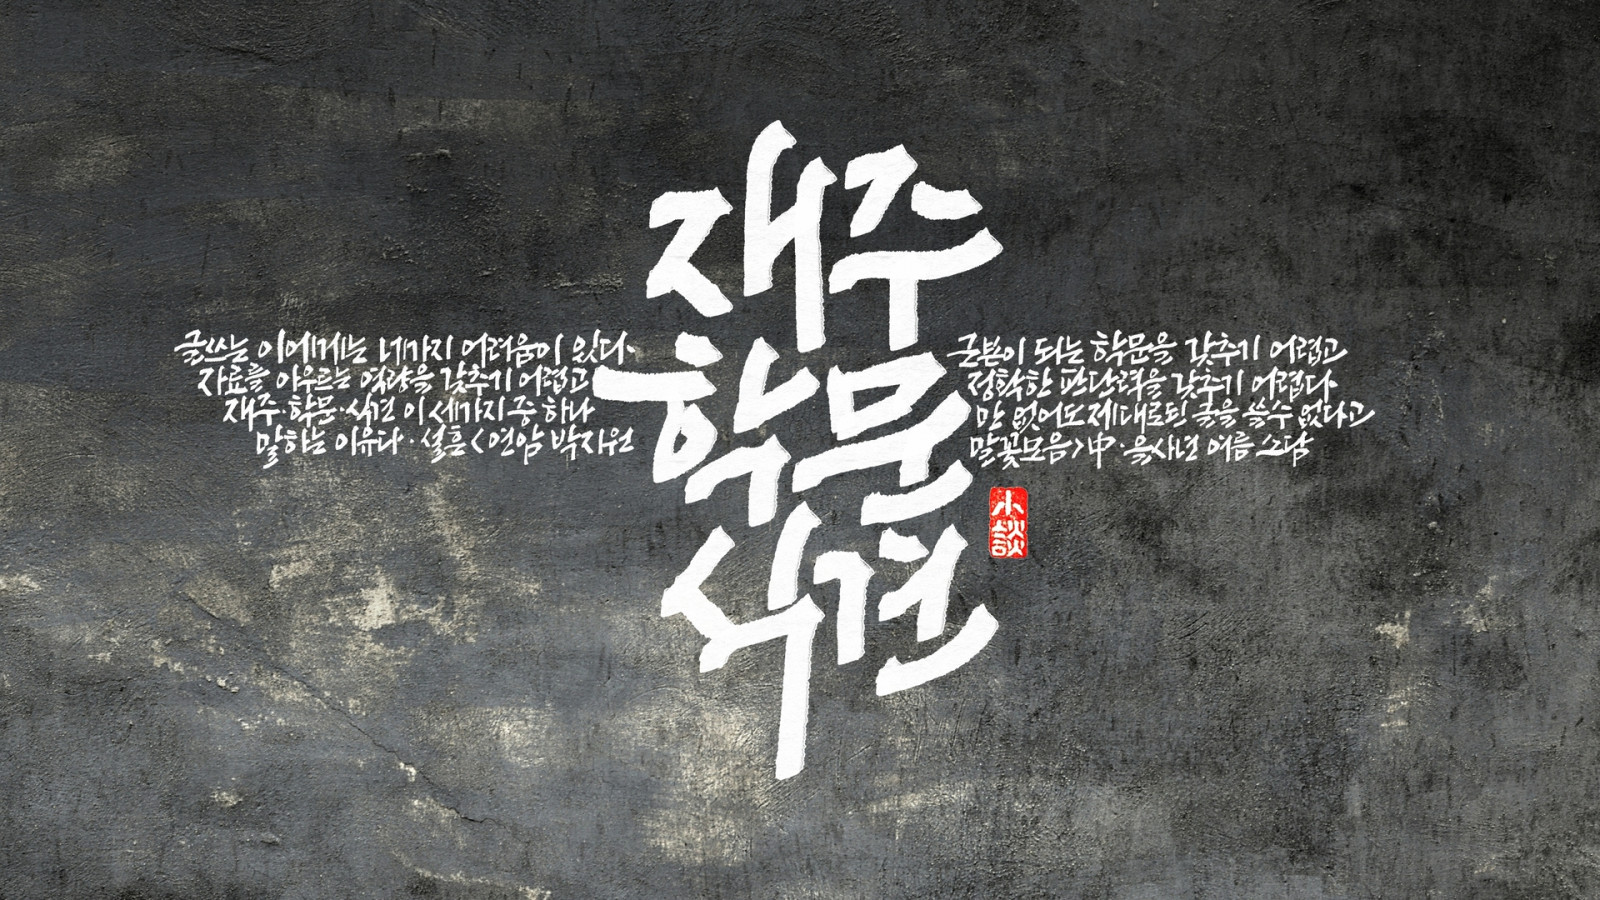 재주
학문
식견
글쓰는 이에게는 네가지 어려움이 있다. 근본이 되는 학문을 갖추기 어렵고
자료를 아우르는 역량을 갖추기 어렵고 정확한 판단력을 갖추기 어렵다.
재주·학문·식견 이 세가지 중 하나만 없어도 제대로된 글을 쓸수 없다고
말하는 이유다·설흔<연암 박지원 말꽃모음>中·을사년 여름 소담
小談